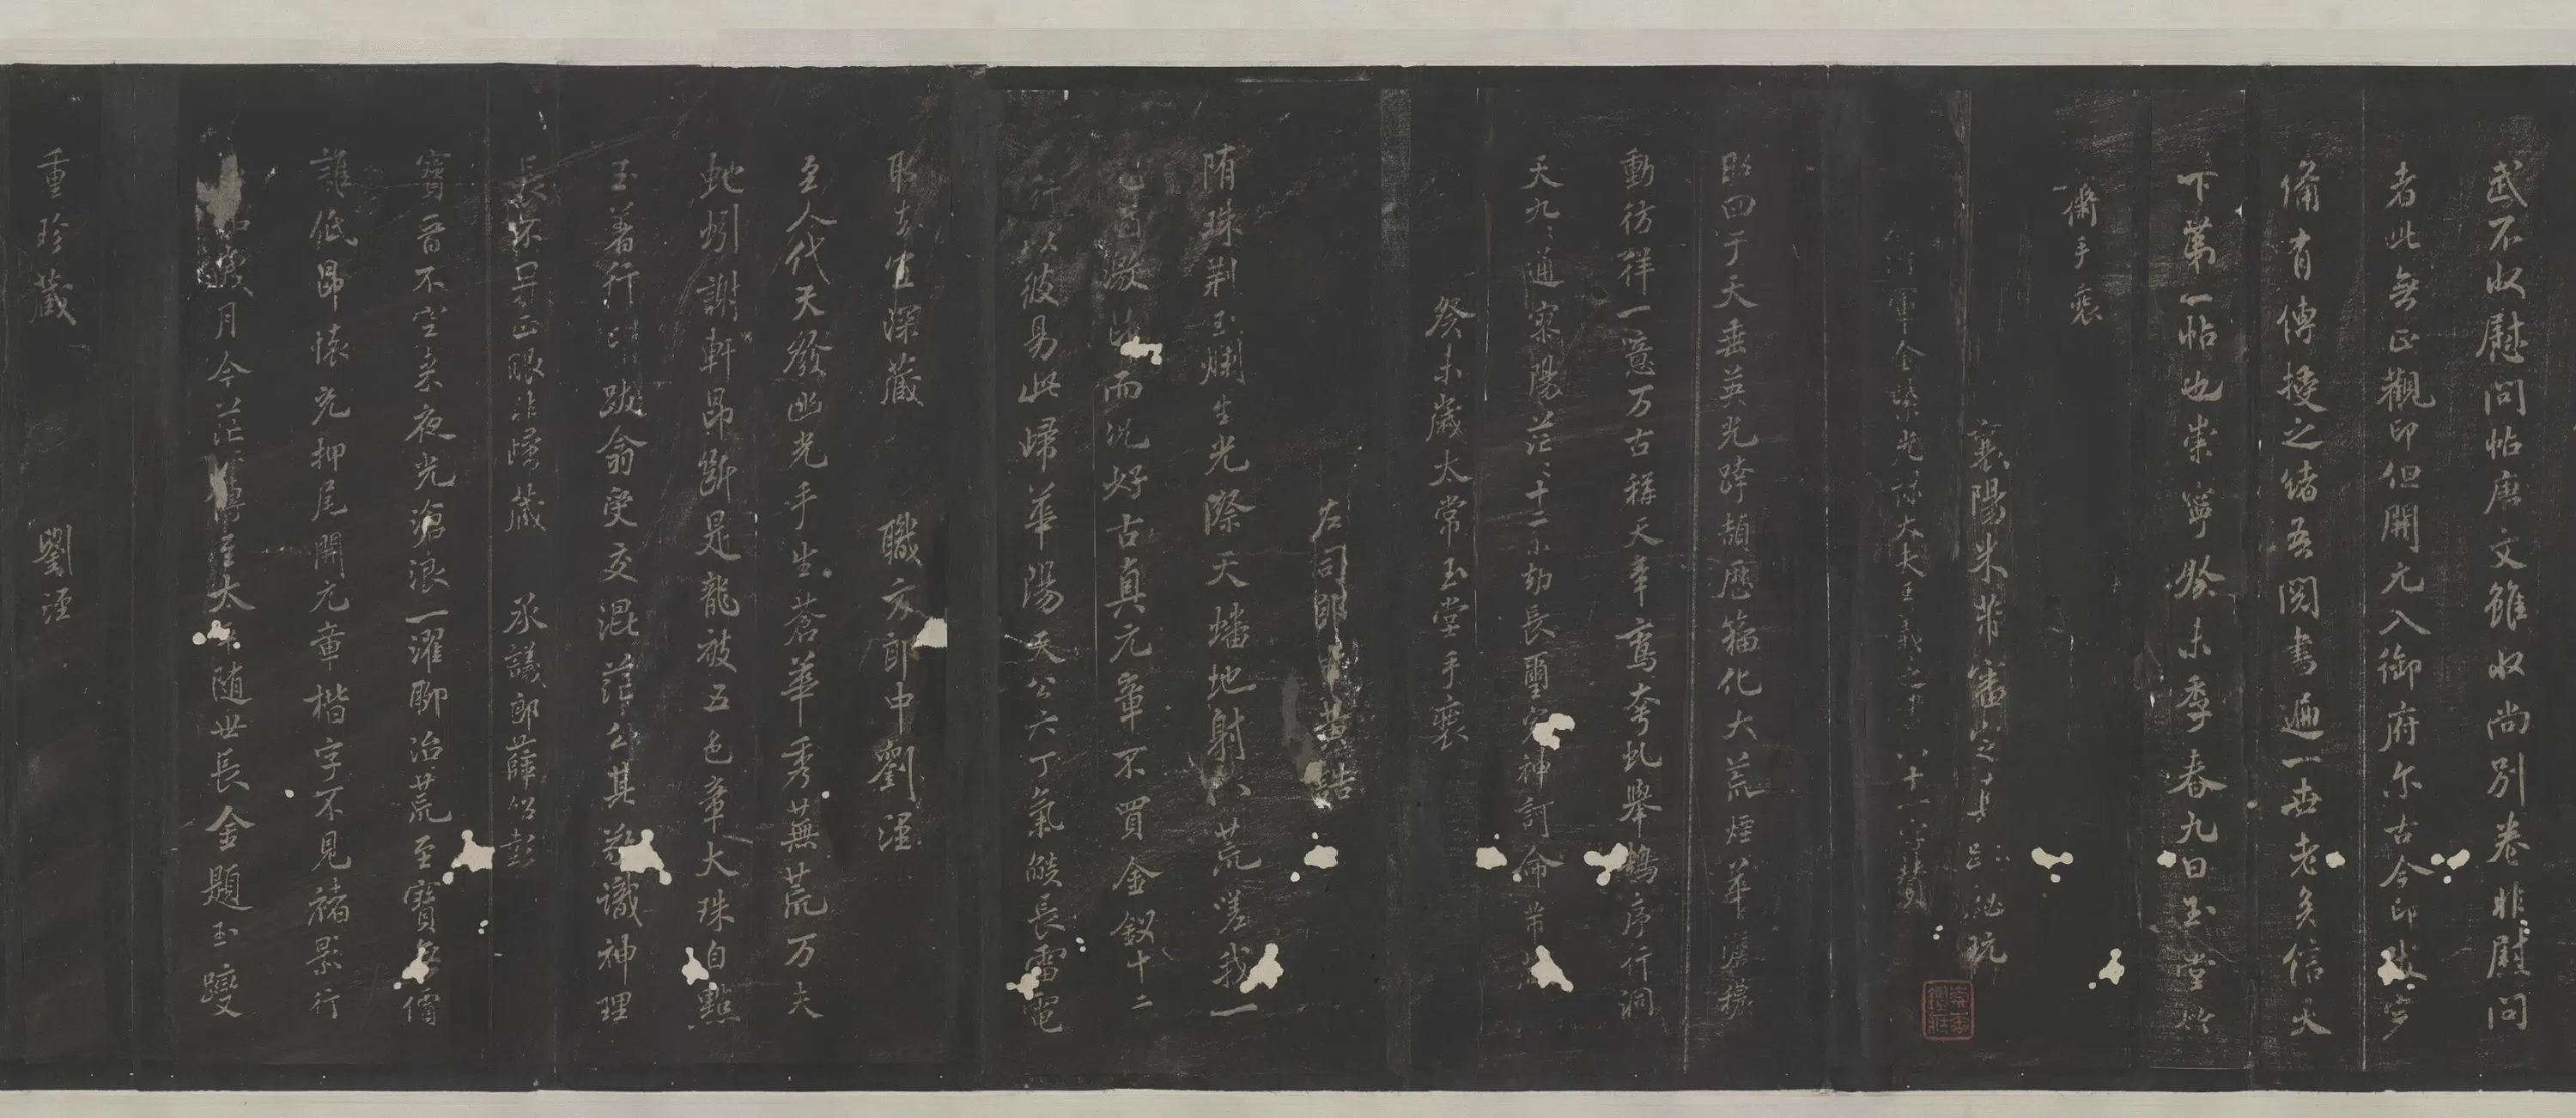 武不收慰問帖唐文雖收尚別卷非慰問
者此無正觀印但開元入御府尔古今印跋完
備有傳授之緒吾閱書遍一世老矣信天
下第一帖也崇寧癸未季春九日玉堂
襟手裝
襄陽米芾審定之真跡秘玩
軍金紫光祿大夫王羲之 八十一字贊
昭回于天垂英光跨頡歷籀化大荒煙華淡穠
動彷徉一噫万古稱天章鸞夸虬舉鵠序行洞
天九九通寥陽茫茫十二小劫長璽完神訂命芾藏
癸未歲太常玉堂手裝
左司郎中黃誥
隋珠荆玉爛生光際天蟠地射八荒嗟我一
而況好古真元章不買金釵十二
行以彼易此歸華陽天公六丁氣燄長雷電
取去宜深藏 職方郎中劉涇
至人代天發幽光手生蒼華秀蕪荒万夫
虵蚓謝軒昂斷是龍被五色章大珠自點
玉着行印跋僉叟交混茫公其 識神理
長 正眼非 藏 承議郎薛紹彭
寶晉不空来夜光滄浪一濯聊治荒至寶無價
誰低昂懷充押尾開元章楷字不見褚景行
歲月今茫 太 隨世長金題玉躞
重珍藏 劉涇